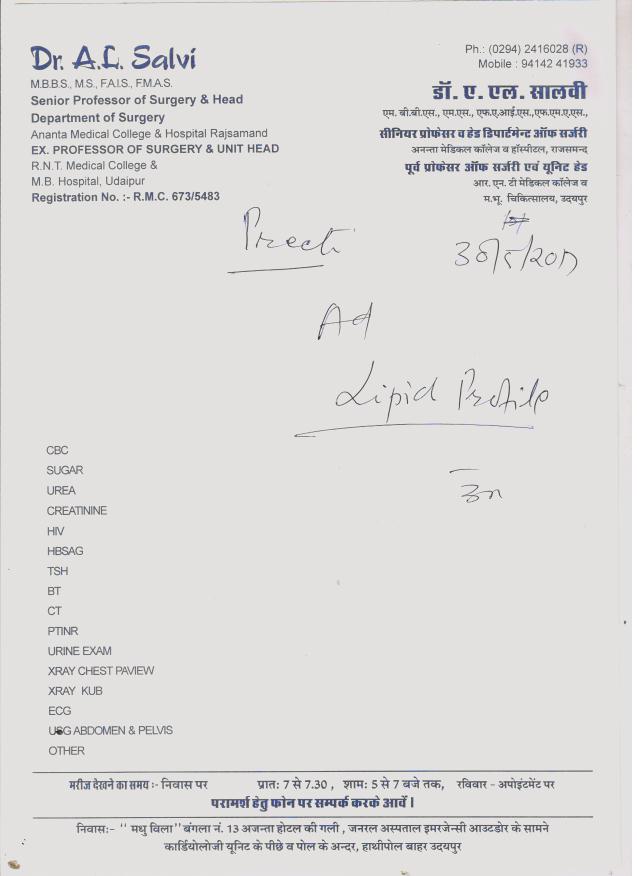 Dr. A.L. Salvi
M.B.B.S., M.S., F.A.I.S., F.M.A.S.
Senior Professor of Surgery & Head
Department of Surgery
Ananta Medical College & Hospital Rajsamand
EX. PROFESSOR OF SURGERY & UNIT HEAD
R.N.T. Medical College &
M.B. Hospital, Udaipur
Registration No. :- R.M.C. 673/5483
Ph.: (0294) 2416028 (R)
Mobile : 94142 41933
डॉ. ए. एल. सालवी
एम. बी.बी.एस., एम.एस., एफ.ए.आई.एस.,एफ.एम.ए.एस.,
सीनियर प्रोफेसर व हेड डिपार्टमेन्ट ऑफ सर्जरी
अनन्ता मेडिकल कॉलेज व हॉस्पीटल, राजसमन्द
पूर्व प्रोफेसर ऑफ सर्जरी एवं यूनिट हेड
आर. एन. टी मेडिकल कॉलेज व
म.भू. चिकित्सालय, उदयपुर
Preeti
30/5/2017
Ad
Lipid Profile
CBC
SUGAR
UREA
CREATININE
HIV
HBSAG
TSH
BT
CT
PTINR
URINE EXAM
XRAY CHEST PAVIEW
XRAY KUB
ECG
USG ABDOMEN & PELVIS
OTHER
मरीज देखने का समय :- निवास पर प्रातः 7 से 7.30 , शामः 5 से 7 बजे तक, रविवार - अपोइंटमेंट पर
परामर्श हेतु फोन पर सम्पर्क करके आवें ।
निवासः- '' मधु विला'' बंगला नं. 13 अजन्ता होटल की गली , जनरल अस्पताल इमरजेन्सी आउटडोर के सामने
कार्डियोलोजी यूनिट के पीछे व पोल के अन्दर, हाथीपोल बाहर उदयपुर